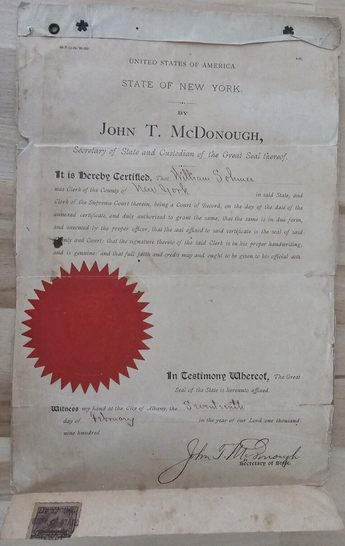 UNITED STATES OF AMERICA.
STATE OF NEW YORK.
BY
JOHN T. MCDONOUGH,
Secretary of State and Custodian of the Great Seal thereof.
It is Hereby Certified, That William Sohmer
was Clerk of the County of New York in said State, and
Clerk of the Supreme Court therein, being a Court of Record, on the day of the date of the
annexed certificate, and duly authorized to grant the same; that the same is in due form,
and executed by the proper officer; that the seal affixed to said certificate is the seal of said
and Court; that the signature thereto of the said Clerk is in his proper handwriting,
and is genuine; and that full faith and credit may and ought to be given to his official acts.
In Testimony Whereof, The Great
Seal of the State is hereunto affixed.
Witness my hand at the City of Albany, the
day of February in the year of our Lord one thousand
nine hundred
John T. McDonough
Secretary of State.